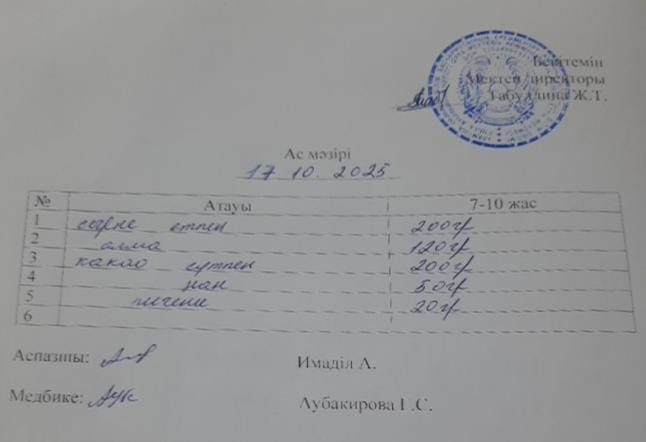 Бекітемін
Мектеп директоры
Габуллина Ж.Т.
Ас мәзірі
17 10. 2025
№ Атауы 7-10 жас
1 етпен 200гр
2 алма 120гр
3 какао сүтпен 200гр
4 нан 50гр
5 печени 20гр
6
Аспазшы: Имаділ А.
Медбике: Аубакирова Г.С.